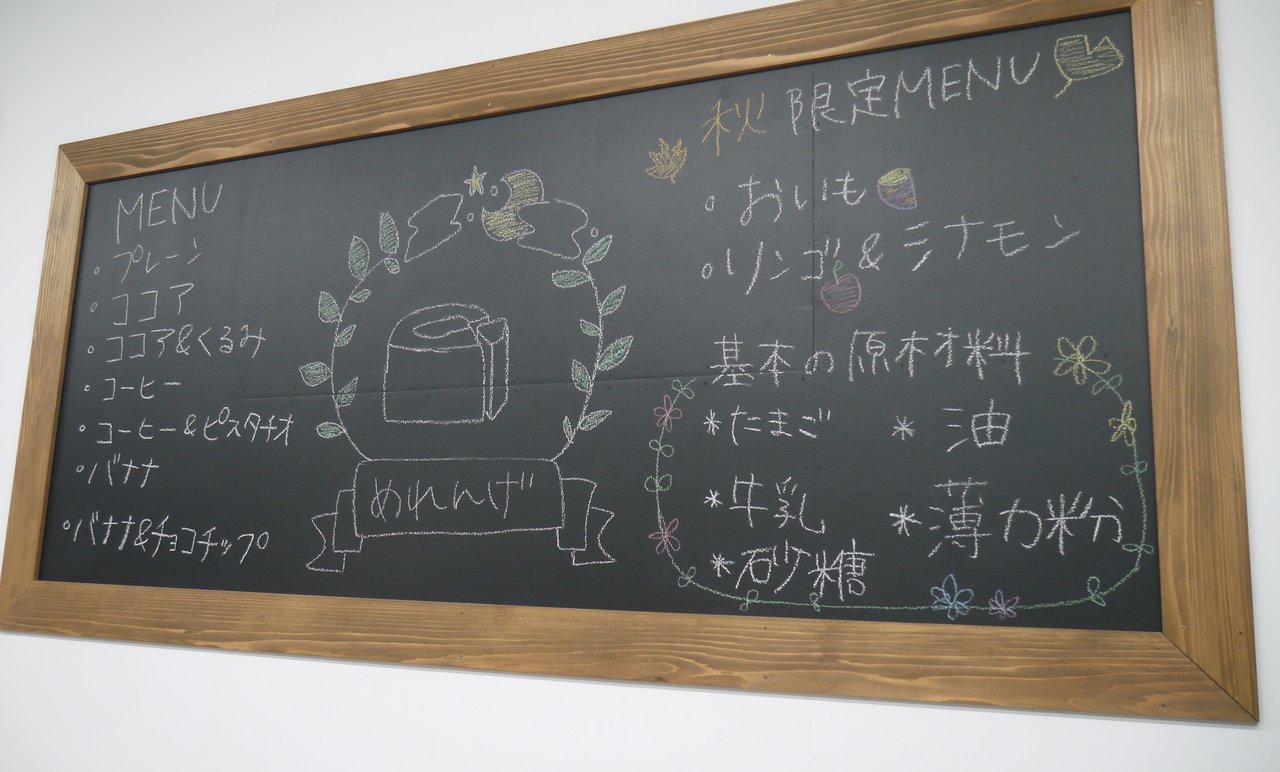 MENU
・プレーン
・ココア
・ココア&くるみ
・コーヒー
・コーヒー&ピスタチオ
・バナナ
・バナナ&チョコチップ
めれんげ
秋限定MENU
・おいも
・リンゴ&シナモン
基本の原材料
*たまご *油
*牛乳 *薄力粉
*砂糖